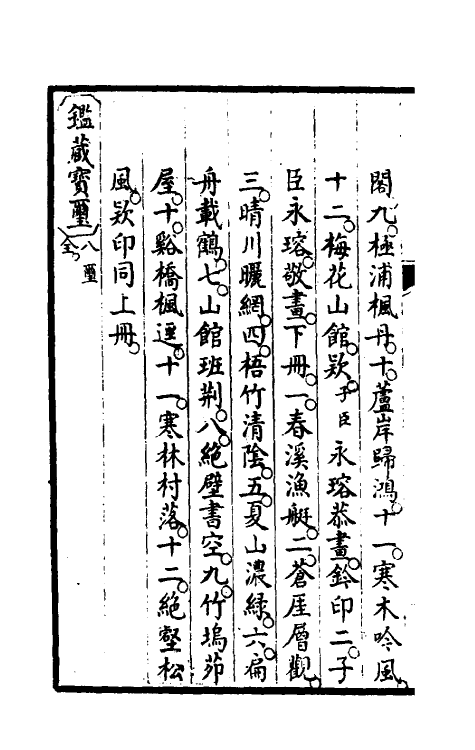 閣九極浦楓丹十蘆岸歸鴻十一寒木吟風
十二梅花山館款子臣永瑢恭畫鈐印二子
臣永瑢敬畫下冊一春溪漁艇二蒼厓層觀
三晴川曬網四梧竹清陰五夏山濃綠六扁
舟載鶴七山館班荆八絕壁書空九竹塢茆
屋十谿橋楓逕十一寒林村落十二絕壑松
風款印同上冊
鑑藏寶璽八璽全